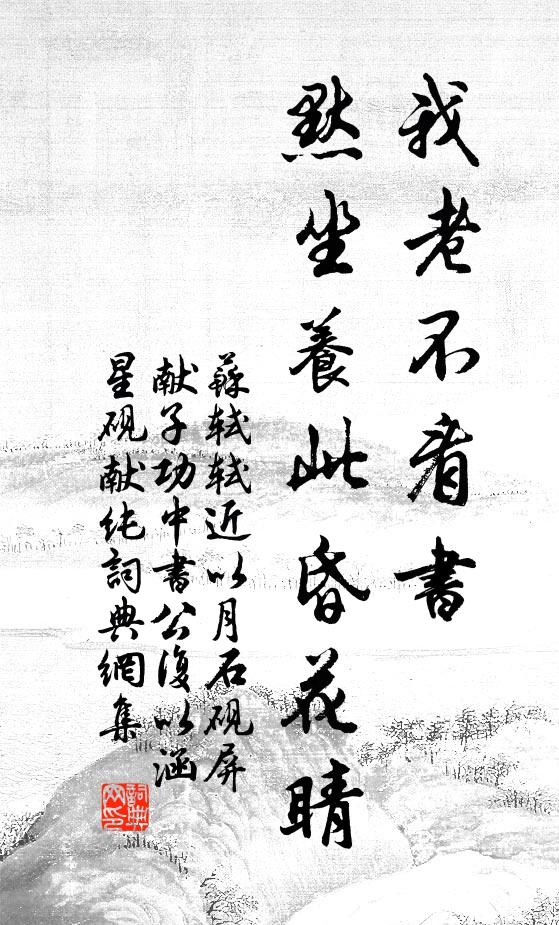 我老不看書
默坐養此昏花睛
蘇軾軾近以月石硯屏
献子功中書公復以涵
星硯献纯詞典網集
詞典网印